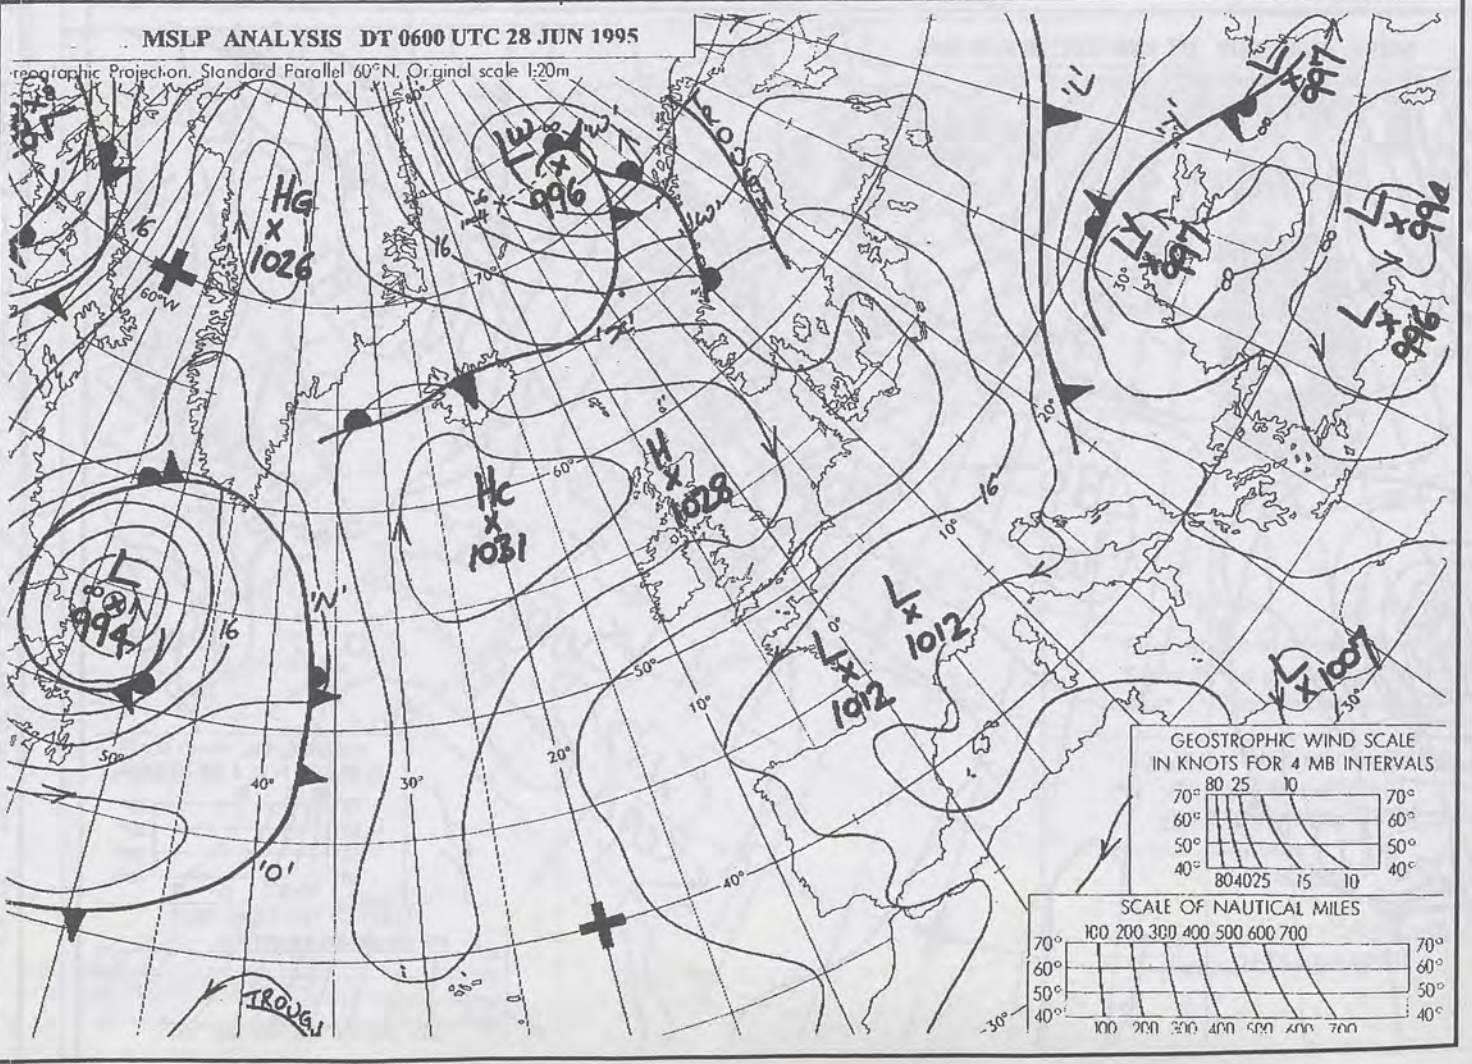 MSLP ANALYSIS DT 0600 UTC 28 JUN 1995
reographic Projection. Standard Parallel 60°N. Original scale 1:20m
80°
LW
996
'W'
TROUGH
'W'
'L'
'Y'
997
8
HG
1026
16
60°W
16
70°
LY
997
30°
8
8
L
990
L
996
20°
'Z'
HC
1031
60°
H
1028
16
10°
L
994
'N'
16
L
1012
0°
L
1012
50°
10°
L
1007
30°
50°
40°
30°
20°
'O'
40°
TROUGH
30°
GEOSTROPHIC WIND SCALE
IN KNOTS FOR 4 MB INTERVALS
80 25 10
70° 70°
60° 60°
50° 50°
40° 40°
80 40 25 15 10
SCALE OF NAUTICAL MILES
100 200 300 400 500 600 700
70° 70°
60° 60°
50° 50°
40° 40°
100 200 300 400 500 600 700